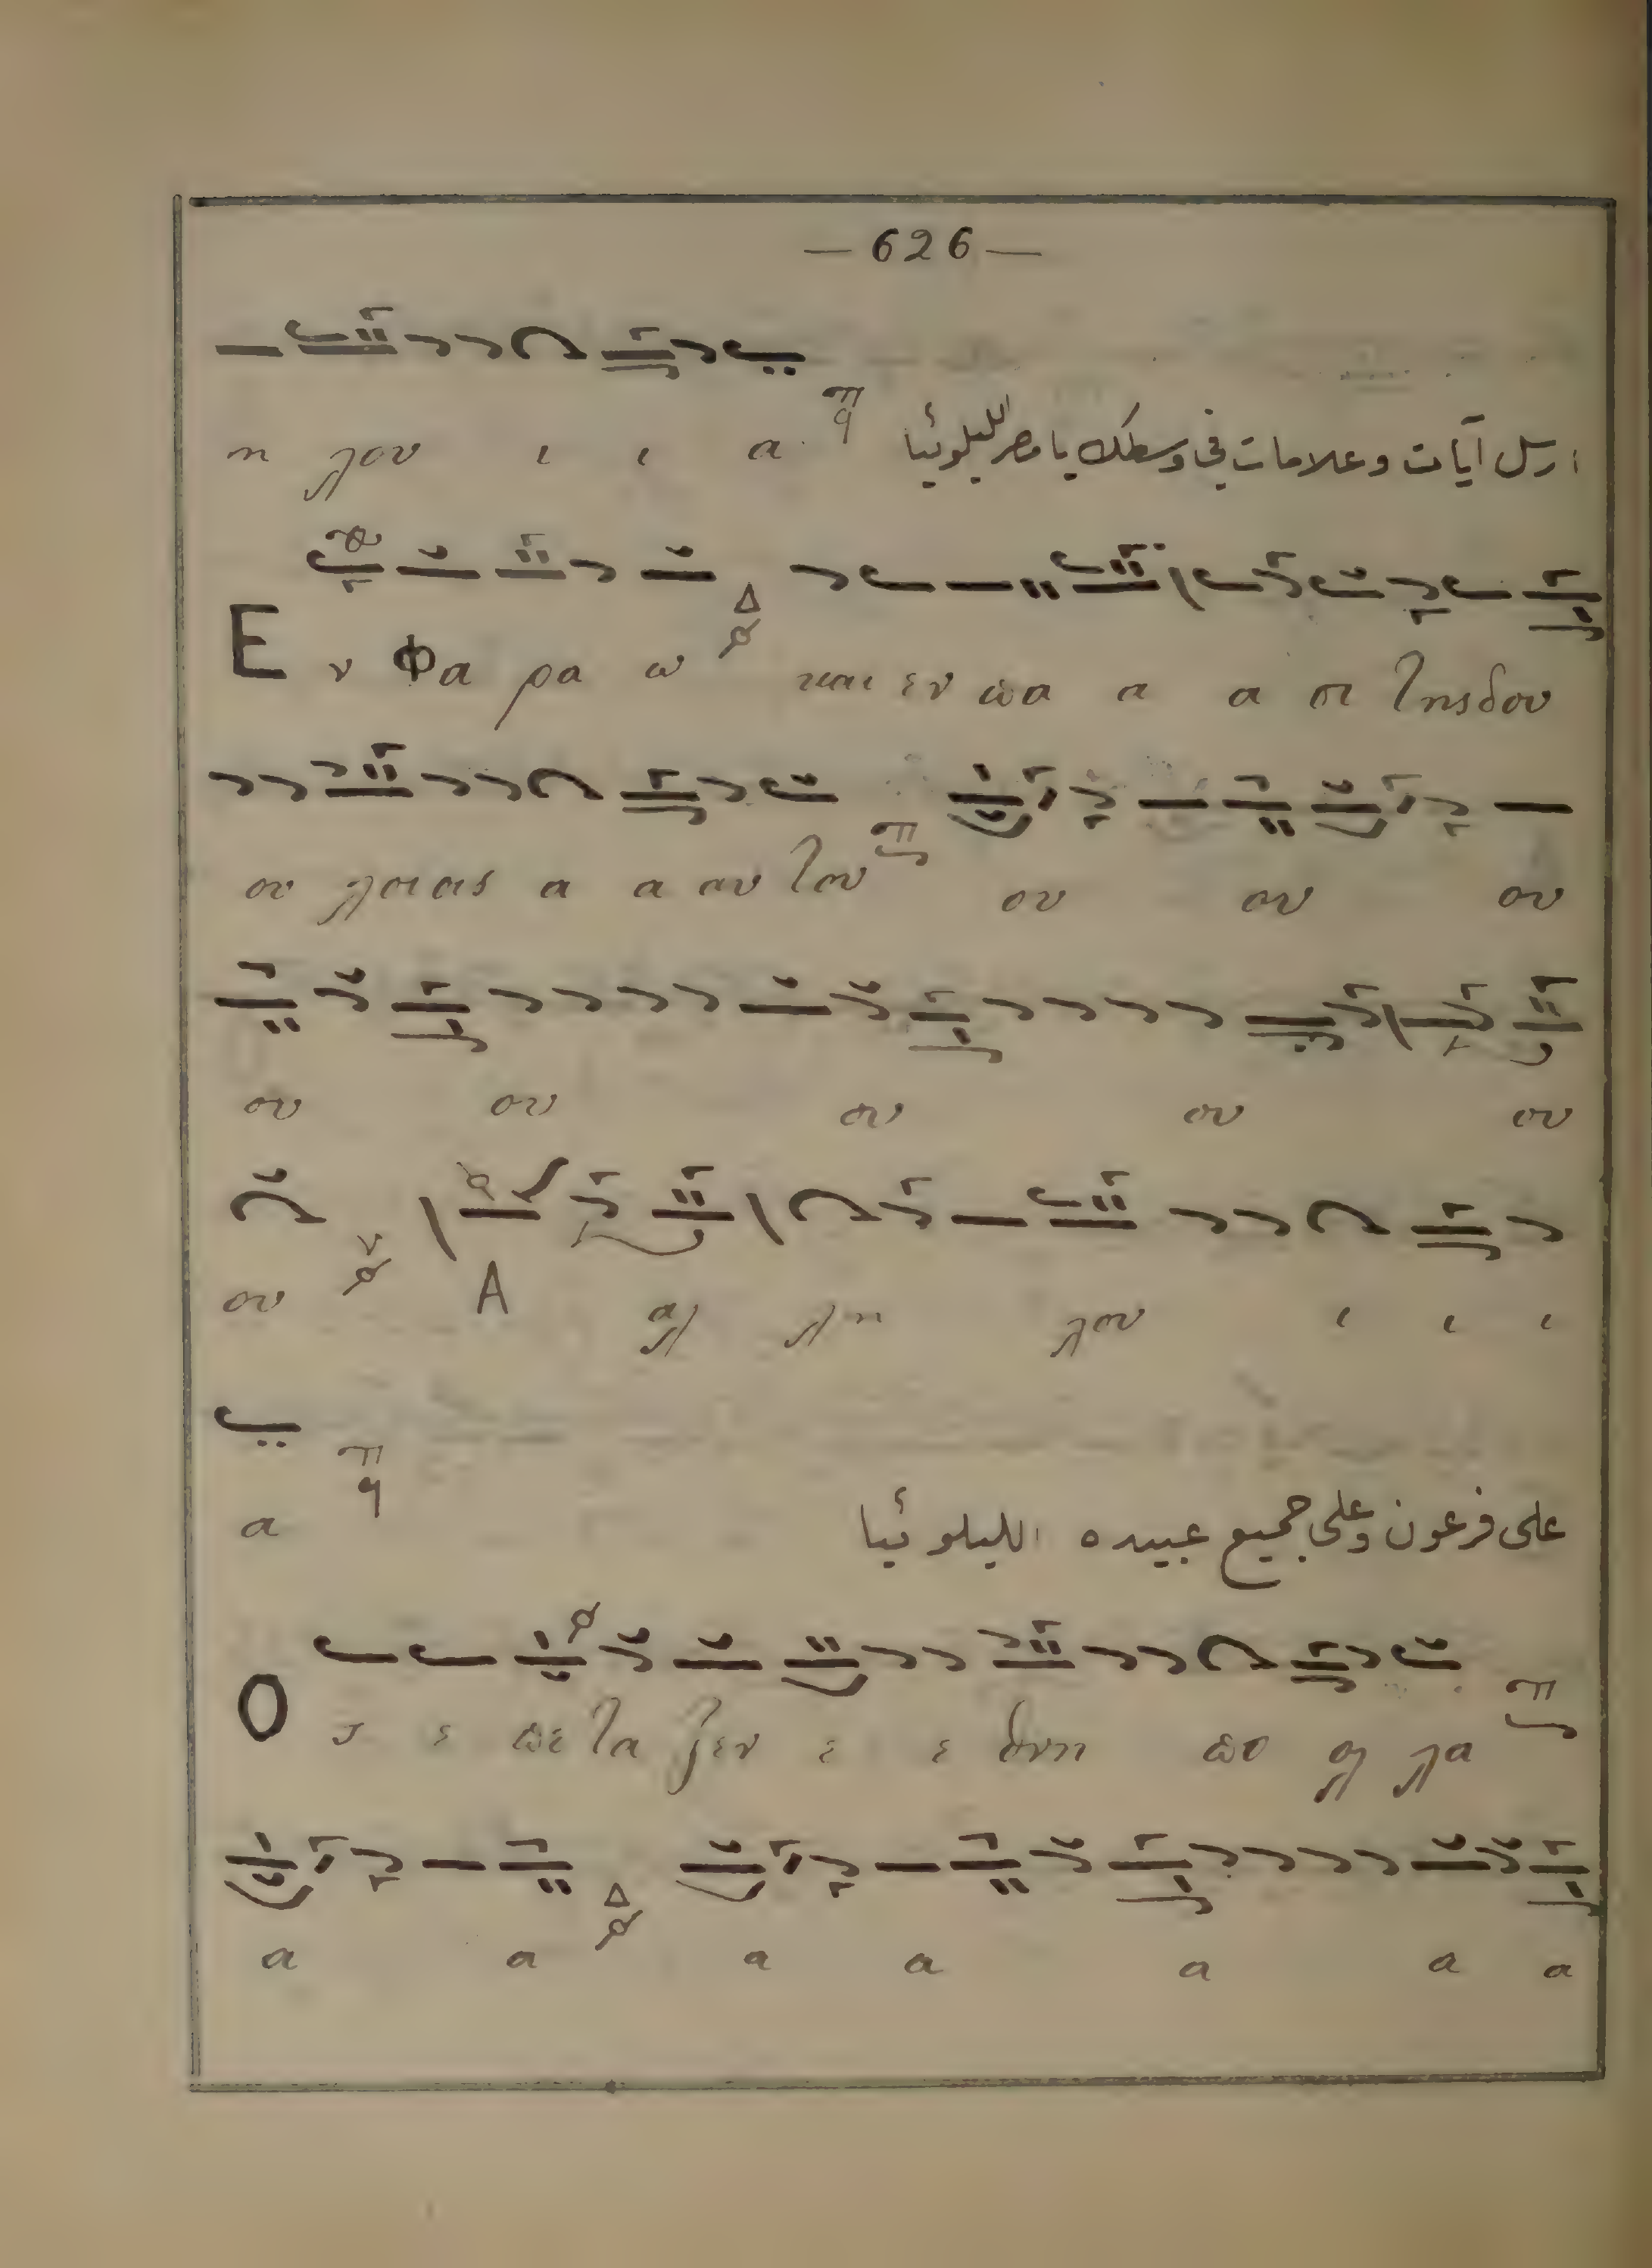 — 626 —
η λου ι ι α ارسل آيات وعلامات في وسطك يا مصر الليلوئيا
Εν Φα ρα ω και εν πα α α σι της δου
ου λοις α α αυ του ου ου ου
ου ου ου ου ου
ου Α αλ λη λου ι ι ι
α على فرعون وعلى جميع عبيده الليلوئيا
Ος ε πα τα ξεν ε ε θνη πο λ λα
α α α α α α α